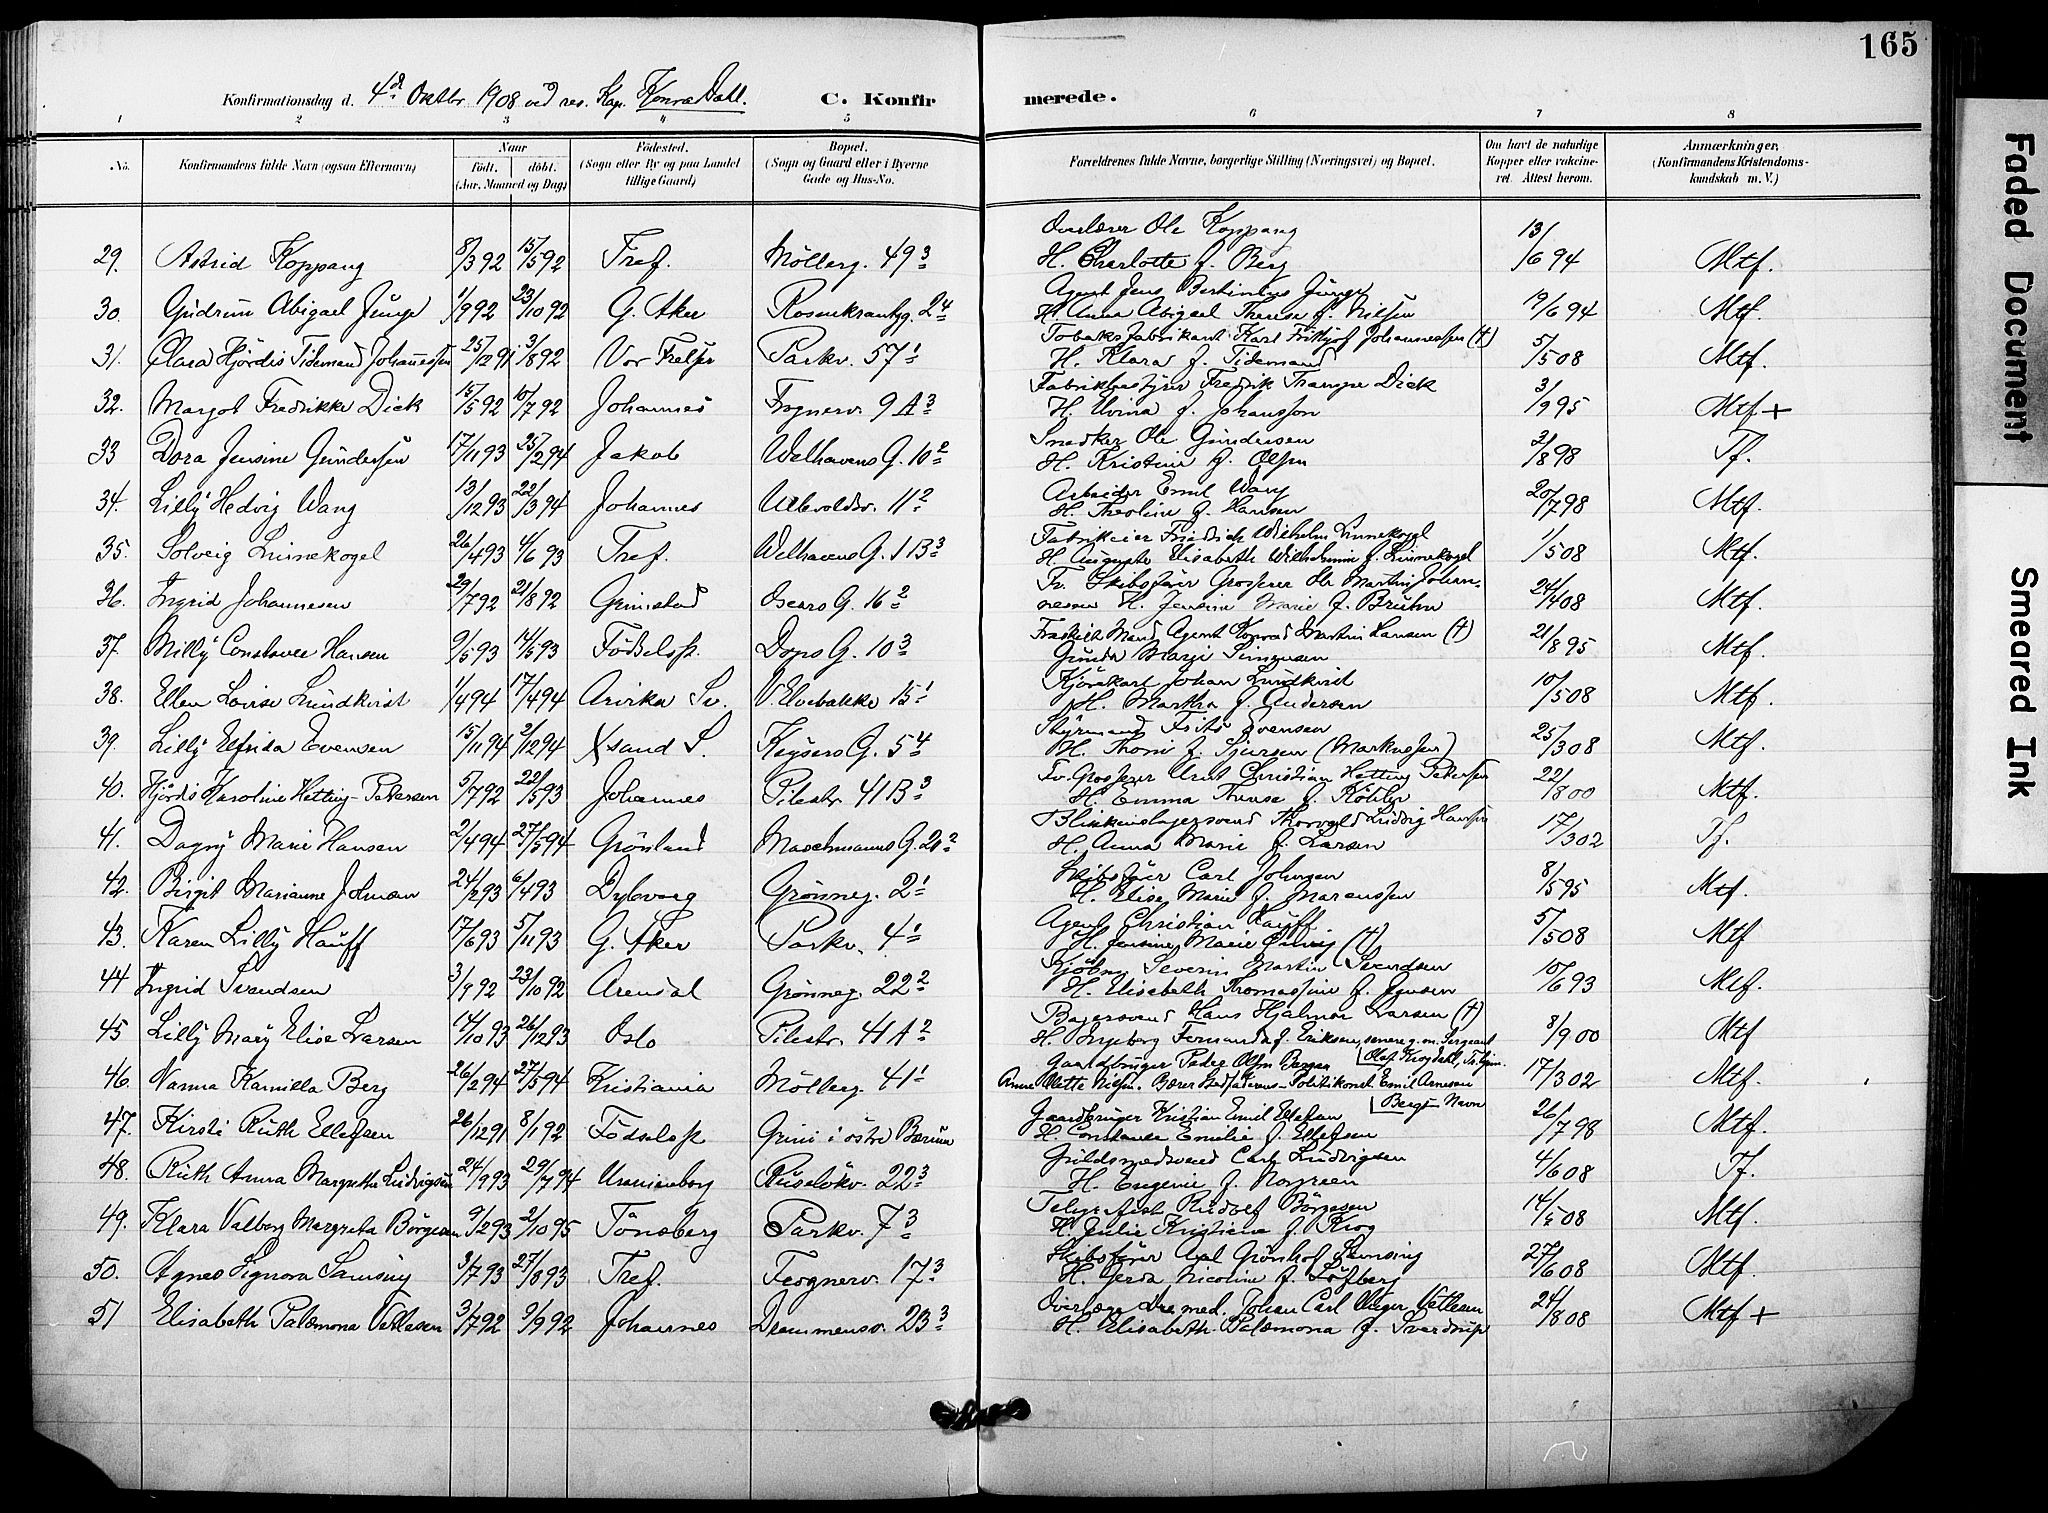 165
Konfirmationsdag d. 4de Oktbr 1908 ved res. Kap. Konr. Dahl.
C. Konfirmerede.
1 2 3 4 5 6 7 8
No. Konfirmandens fulde Navn (ogsaa Efternavn) Naar født. døbt. (Aar, Maaned og Dag) Fødested. (Sogn eller By og paa Landet tillige Gaard) Bopæl. (Sogn og Gaard eller i Byerne Gade og Hus-No. Forældrenes fulde Navne, borgerlige Stilling (Næringsvei) og Bopæl. Om havt de naturlige Kopper eller vakcineret. Attest herom. Anmærkninger, (Konfirmandens Kristendomskundskab m. V.)
29. Astrid Koppang 8/3 92 15/5 92 Tref. Möllerg. 49 3 Overlærer Ole Koppang H. Charlotte f. Berg 13/6 94 Mtf.
30. Gudrun Abigael Junge 1/9 92 23/10 92 G. Aker Rosenkrantzg. 24 Agent Jens Bertinius Junge H. Anna Abigael Therese f. Nilsen 19/6 94 Mtf.
31. Clara Hjördis Tidemand Johannessen 25/12 91 3/8 92 Vor Frelser Parkv. 57 1 Tobaksfabrikant Karl Frithjof Johannessen (†) H. Klara f. Tidemand 5/5 08 Mtf.
32. Margot Fredrikke Dick 15/5 92 10/7 92 Johannes Frognerv. 9 A 3 Fabrikbestyrer Fredrik Trampe Dick H. Alvina f. Johansson 3/9 95 Mtf +
33 Dora Jensine Gundersen 17/11 93 25/2 94 Jakob Welhavens G. 10 2 Snedker Ole Gundersen H. Kristine f. Olsen 2/8 98 Tf.
34. Lilly Hedvig Wang 13/12 93 22/3 94 Johannes Ullevoldsv. 11 2 Arbeider Emil Wang H. Theoline f. Hansen 20/7 98 Mtf.
35. Solveig Linnekogel 26/4 93 4/6 93 Tref. Welhavens G. 1 B 3 Fabrikeier Friedrich Wilhelm Linnekogel H. Auguste Elisabeth Wilhelmine f. Linnekogel 1/5 08 Mtf.
36. Ingrid Johannesen 29/7 92 21/8 92 Grimstad Oscars G. 16 2 Fv. Skibsfører Grosserer Ole Martin Johannesen H. Jensine Marie f. Bruhn 24/4 08 Mtf.
37. Milly Constance Hansen 9/5 93 14/5 93 Födselsst. Dops G. 10 3 Fraskilt Mand Agent Konrad Martin Hansen (†) Gunda Marie Simonsen 21/8 95 Mtf.
38. Ellen Lovise Lundkvist 1/4 94 17/4 94 Arvika Sv. V. Elvebakke 15 1 Kjörekarl Johan Lundkvist H. Martha f. Andersen 10/5 08 Mtf.
39. Lilly Elfrida Evensen 15/11 94 2/12 94 Xsand S. Keysers G. 5 4 Styrmand Frits Evensen H. Thoni f. Sjursen (Markussen) 25/3 08 Mtf.
40. Hjördis Karoline Hetting-Petersen 5/7 92 22/5 93 Johannes Pilestr. 41 B 3 Fv. Grosserer Arnt Christian Hetting Petersen H. Emma Therese f. Köhler 22/8 00 Mtf.
41. Dagny Marie Hansen 2/4 94 27/5 94 Grönland Maschmanns G. 20 2 Blikkenslagersvend Thorvald Ludvig Hansen H. Anna Marie f. Larsen 17/3 02 Tf.
42. Birgit Marianne Johnsen 24/2 93 6/4 93 Dybvaag Grönneg. 2 1 Skibsfører Carl Johnsen H. Elise Marie f. Marcussen 8/5 95 Mtf.
43. Karen Lilly Hauff 17/6 93 5/11 93 G. Aker Parkv. 4 1 Agent Christian Hauff. H. Jensine Marie (†) 5/5 08 Mtf
44 Ingrid Svendsen 3/9 92 23/10 92 Arendal Grönneg. 22 2 Kjöbm. Severin Martin Svendsen H. Elisabeth Thomassine f. Jensen 10/6 93 Mtf.
45 Lilly Mary Elise Larsen 14/10 93 26/12 93 Oslo Pilestr. 41 A 2 Bagersvend Hans Hjalmar Larsen (†) H. Ingeborg Fernanda f. Eriksen, senere g. m. Sergeant Olaf Krogdahl, 8/9 00 Mtf
46. Nanna Kamilla Berg 26/2 94 27/5 94 Kristiania Möllerg. 41 1 Gaardbruger Peder Olsen Anne Olette Nilsen. Bærer Stedfaderens - Politikonst Emil Arnesen Bergs Navn 17/3 02 Mtf.
47. Kirsti Ruth Ellefsen 26/12 91 8/1 92 Födselsst. Grini i östre Bærum Gaardbruger Kristian Emil Ellefsen H. Constance Emilie f. Ellefsen 26/7 98 Mtf.
48. Ruth Anna Margrethe Ludvigsen 24/9 93 29/7 94 Uranienborg Ruselökv. 22 3 Guldsmedsvend Carl Ludvigsen H. Eugenie f. Norgreen 4/6 08 Tf.
49. Klara Valborg Margreta Börgesen 9/2 93 2/10 95 Tönsberg Parkv. 7 3 Telegrafist Rudolf Börgesen H. Julie Kristiane f. Krog 14/5 08 Mtf.
50. Agnes Signora Samsing 3/7 93 27/8 93 Tref. Frognerv. 17 3 Skibsfører Axel Grønhof Samsing H. Gerda Nicoline f. Löfberg 27/6 08 Mtf.
51 Elisabeth Palæmona Vetlesen 3/7 92 9/9 92 Johannes Drammensv. 23 3 Overlæge Dr. med. Johan Carl Unger Vetlesen H. Elisabeth Palæmona f. Sverdrup 24/8 08 Mtf +
Faded Document
Smeared Ink